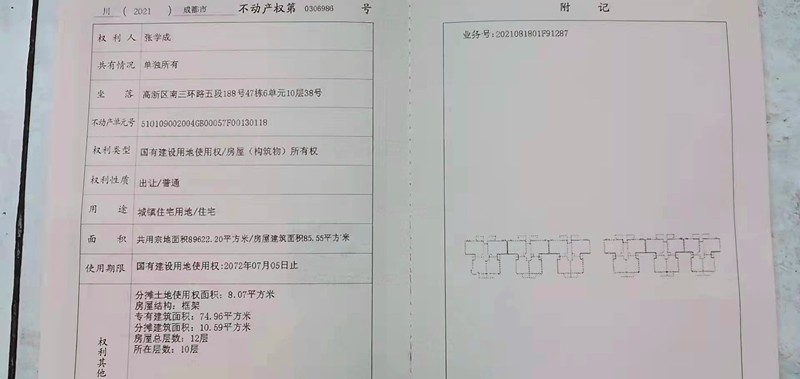 川 ( 2021 ) 成都市 不动产权第 0306986 号
权利人 张学成
共有情况 单独所有
坐落 高新区南三环路五段188号47栋6单元10层38号
不动产单元号 510109002004GB00057F00130118
权利类型 国有建设用地使用权/房屋（构筑物）所有权
权利性质 出让/普通
用途 城镇住宅用地/住宅
面积 共用宗地面积89622.20平方米/房屋建筑面积85.55平方米
使用期限 国有建设用地使用权:2072年07月05日止
权利其他
分摊土地使用权面积: 8.07平方米
房屋结构: 框架
专有建筑面积: 74.96平方米
分摊建筑面积: 10.59平方米
房屋总层数: 12层
所在层数: 10层
附记
业务号:2021081801F91287